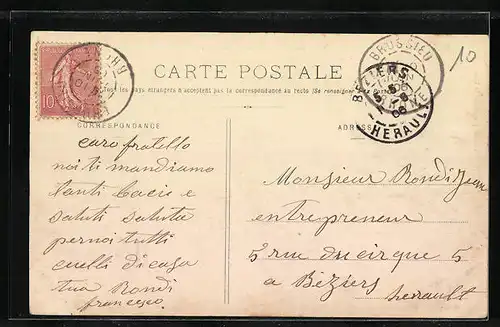 10
BRUSSIEU
BEZIERS
HERAULT
CARTE POSTALE
Tous les pays étrangers n'acceptent pas la correspondance au recto (Se renseigner
CORRESPONDANCE
ADRESSE
10
caro fratello
noi ti mandiamo
tanti Bacie e
saluti saluta
per noi tutti
quelli di casa
tua Rondi
francesco
Monsieur Rondi Jean
entrepreneur
5 rue du cirque 5
a Béziers
herault